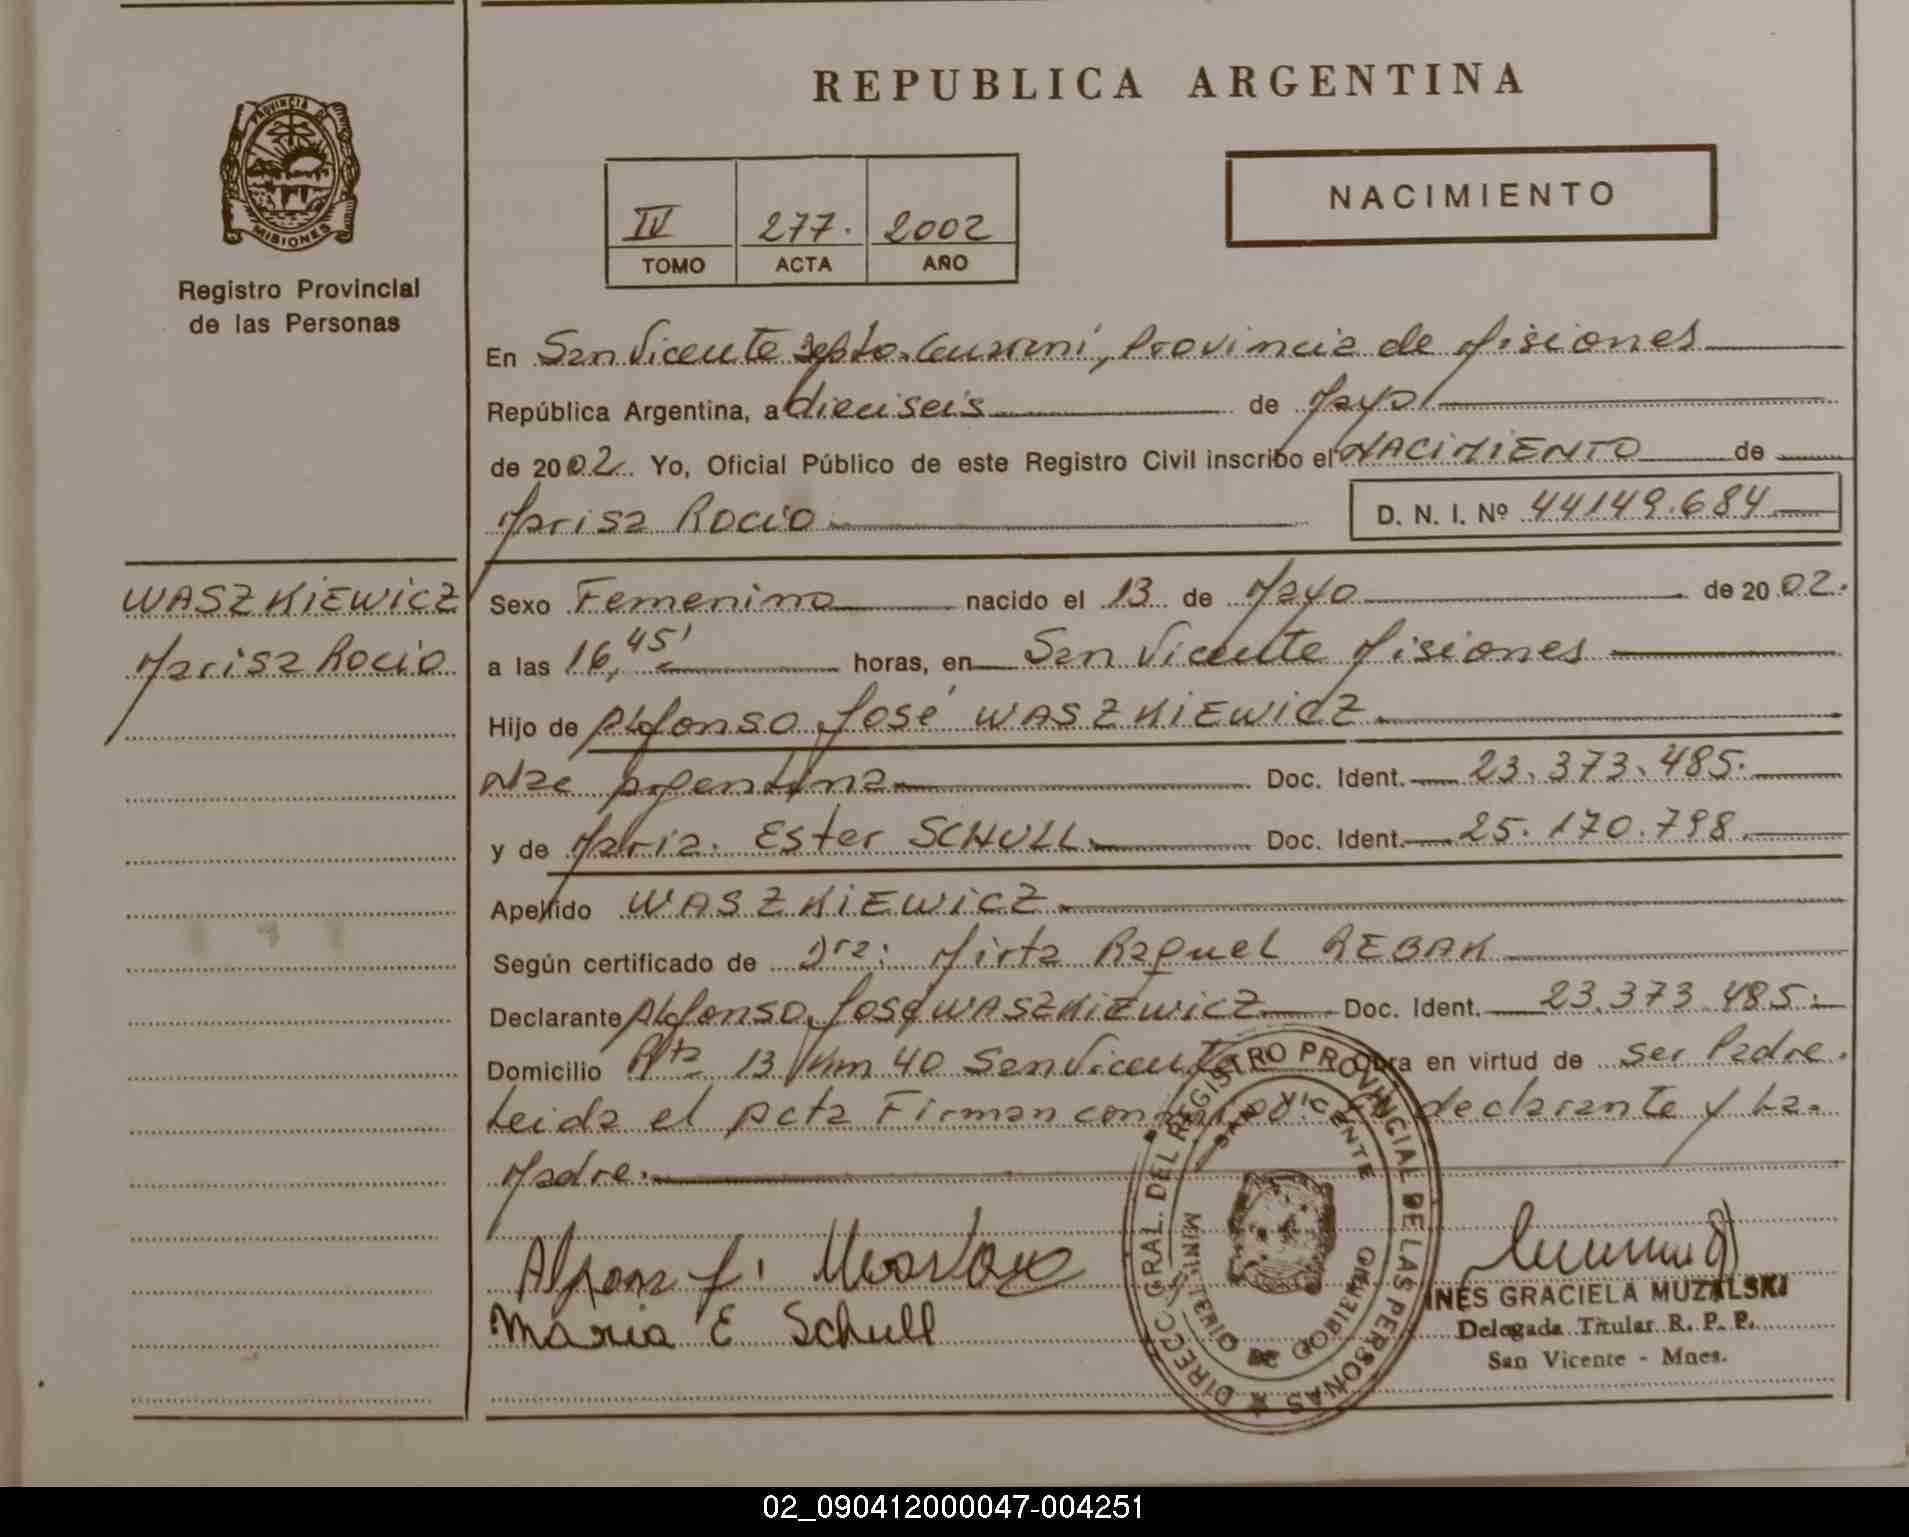 REPUBLICA ARGENTINA
PROVINCIA DE
MISIONES
Registro Provincial
de las Personas
IV 277. 2002
TOMO ACTA AÑO
NACIMIENTO
En San Vicente Depto. Guaraní, Provincia de Misiones
República Argentina, a dieciseis de Mayo
de 2002. Yo, Oficial Público de este Registro Civil inscribo el NACIMIENTO de
Marisa Rocio D. N. I. Nº 44149.684
WASZKIEWICZ
Marisa Rocio
Sexo Femenino nacido el 13 de Mayo de 2002.
a las 16,45' horas, en San Vicente Misiones
Hijo de Alfonso José WASZKIEWICZ
Nac Argentina Doc. Ident. 23.373.485.
y de Maria. Ester SCHULL Doc. Ident. 25.170.798.
Apellido WASZKIEWICZ
Según certificado de Dra: Mirta Raquel REBAK
Declarante Alfonso José WASZKIEWICZ Doc. Ident. 23.373.485.
Domicilio Rta 13 Km 40 San Vicente Obra en virtud de ser Padre.
Leida el Acta Firman conmigo. declarante y La.
Madre.
Maria E Schull
DIRECC. GRAL. DEL REGISTRO PROVINCIAL DE LAS PERSONAS
SAN VICENTE
MINISTERIO DE GOBIERNO
INES GRACIELA MUZALSKI
Delegada Titular R. P. P.
San Vicente - Mnes.
02_090412000047-004251